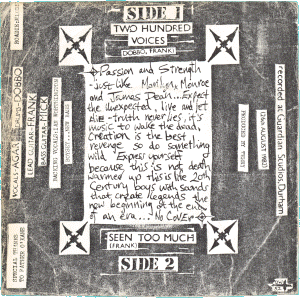 SIDE 1
TWO HUNDRED
VOICES
(DOBBO, FRANK)
Passion and Strength
-just like Marilyn Monroe
and James Dean... Expect
the Unexpected, live and let
die - truth never lies, it's
music to wake the dead,
creation is the best
revenge so do something
wild. Express yourself
because this is not dead
warmed up this is the 20th
Century boys with sounds
that create legends the
new beginning at the end
of an era... No Cover
SEEN TOO MUCH
(FRANK)
SIDE 2
VOCALS-AGAR DRUMS-DOBBO
LEAD GUITAR-FRANK
BASS GUITAR-MICK
BACKING VOCALS
SPECIAL THANKS
TO
recorded at Guardian Studios, Durham
(2nd AUGUST 1983)
PRODUCED BY